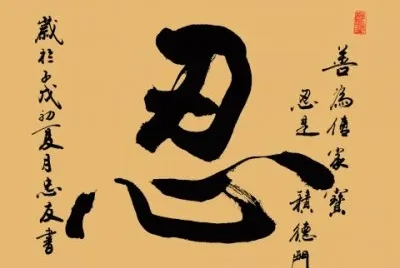 善為傳家寶
忍是積德門
忍
歲於初夏月忠友書